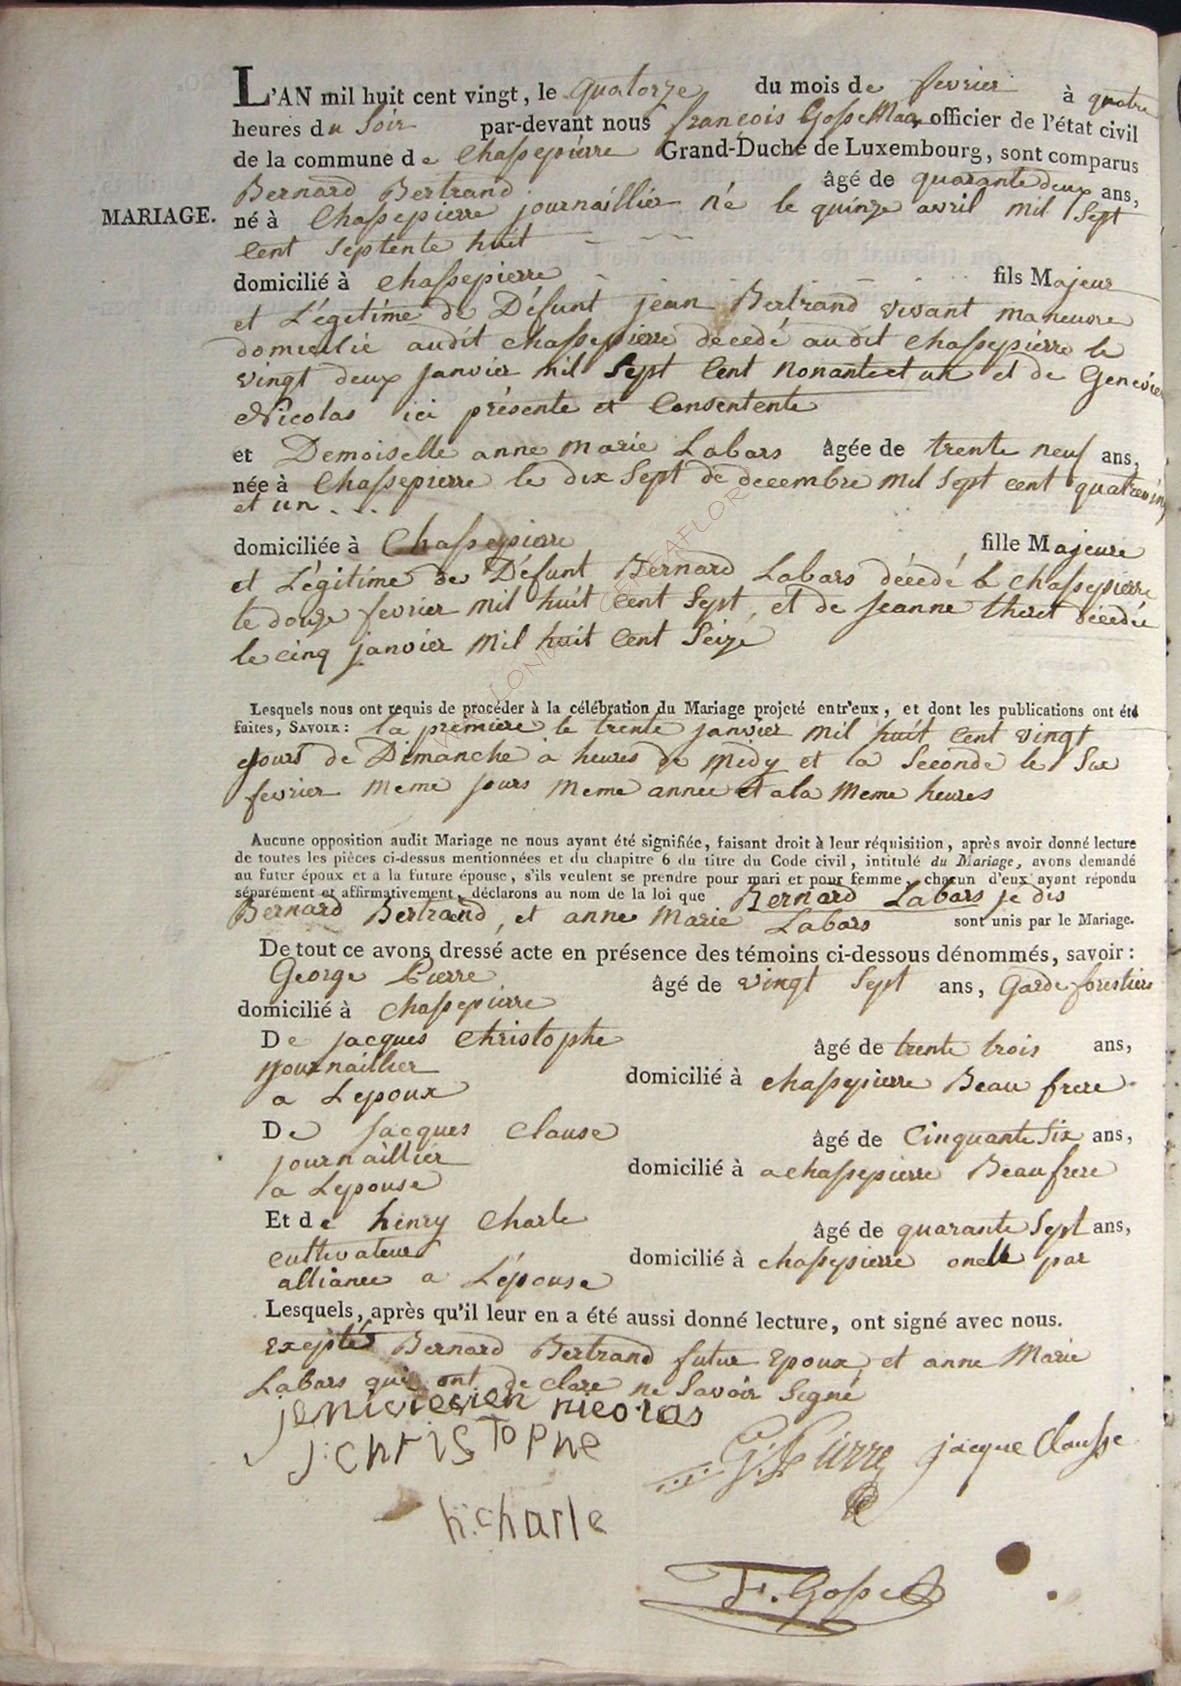 L'AN mil huit cent vingt, le quatorze du mois de fevrier à quatre
heures du Soir par-devant nous françois Gosse officier de l'état civil
de la commune de Chassepierre Grand-Duché de Luxembourg, sont comparus
Bernard Bertrand âgé de quarante deux ans,
MARIAGE. né à Chassepierre journaillier né le quinze avril mil Sept
Cent Septente huit
domicilié à Chassepierre fils Majeur
et Légitime de Défunt jean Bertrand vivant maneuvre
domicilié audit chassepierre décedé audit chassepierre le
vingt deux janvier mil Sept Cent nonante et un et de
Nicolas ici présente et Consentente
et Demoiselle anne marie Labars âgée de trente neuf ans,
née à Chassepierre le dix Sept de decembre mil Sept cent
et un
domiciliée à Chassepierre fille Majeure
et Légitime de Défunt Bernard Labars décedé chassepierre
le douze fevrier mil huit Cent Sept, et de Jeanne décedée
le cinq janvier Mil huit Cent Seize
Lesquels nous ont requis de procéder à la célébration du Mariage projeté entr'eux, et dont les publications ont été
faites, SAVOIR: la premiere le trente janvier mil huit Cent vingt
jours de Dimanche a heures de midy et la Seconde le Six
fevrier meme jours meme année et a la meme heures
Aucune opposition audit Mariage ne nous ayant été signifiée, faisant droit à leur réquisition, après avoir donné lecture
de toutes les pièces ci-dessus mentionnées et du chapitre 6 du titre du Code civil, intitulé du Mariage, avons demandé
au futur époux et à la future épouse, s'ils veulent se prendre pour mari et pour femme, chacun d'eux ayant répondu
séparément et affirmativement, déclarons au nom de la loi que Bernard Labars je dis
Bernard Bertrand, et anne Marie Labars sont unis par le Mariage.
De tout ce avons dressé acte en présence des témoins ci-dessous dénommés, savoir:
George Pierre âgé de vingt Sept ans, Garde forestiere
domicilié à chassepierre
De jacques christophe âgé de trente trois ans,
journaillier domicilié à chassepierre Beau frere
a Lepoux
De Jacques Clause âgé de Cinquante Six ans,
journaillier domicilié à a chassepierre Beau frere
a Lepouse
Et de henry Charle âgé de quarante Sept ans,
cultivateur domicilié à chassepierre par
alliance a Lépouse
Lesquels, après qu'il leur en a été aussi donné lecture, ont signé avec nous.
exeptés Bernard Bertrand futur Epoux, et anne Marie
Labars qui ont declare ne Savoir Signé
nicolas
J: christophe
G: Pierre jacque Clausse
h: charle
F. Gosse